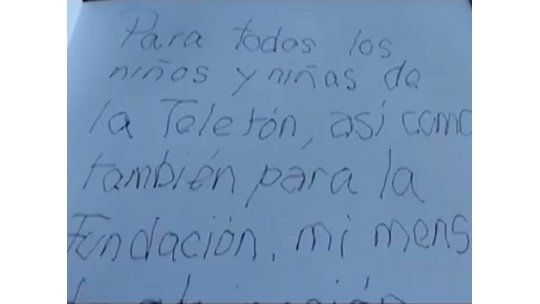 Para todos los
niños y niñas de
la Teletón, así como
también para la
Fundación, mi mens